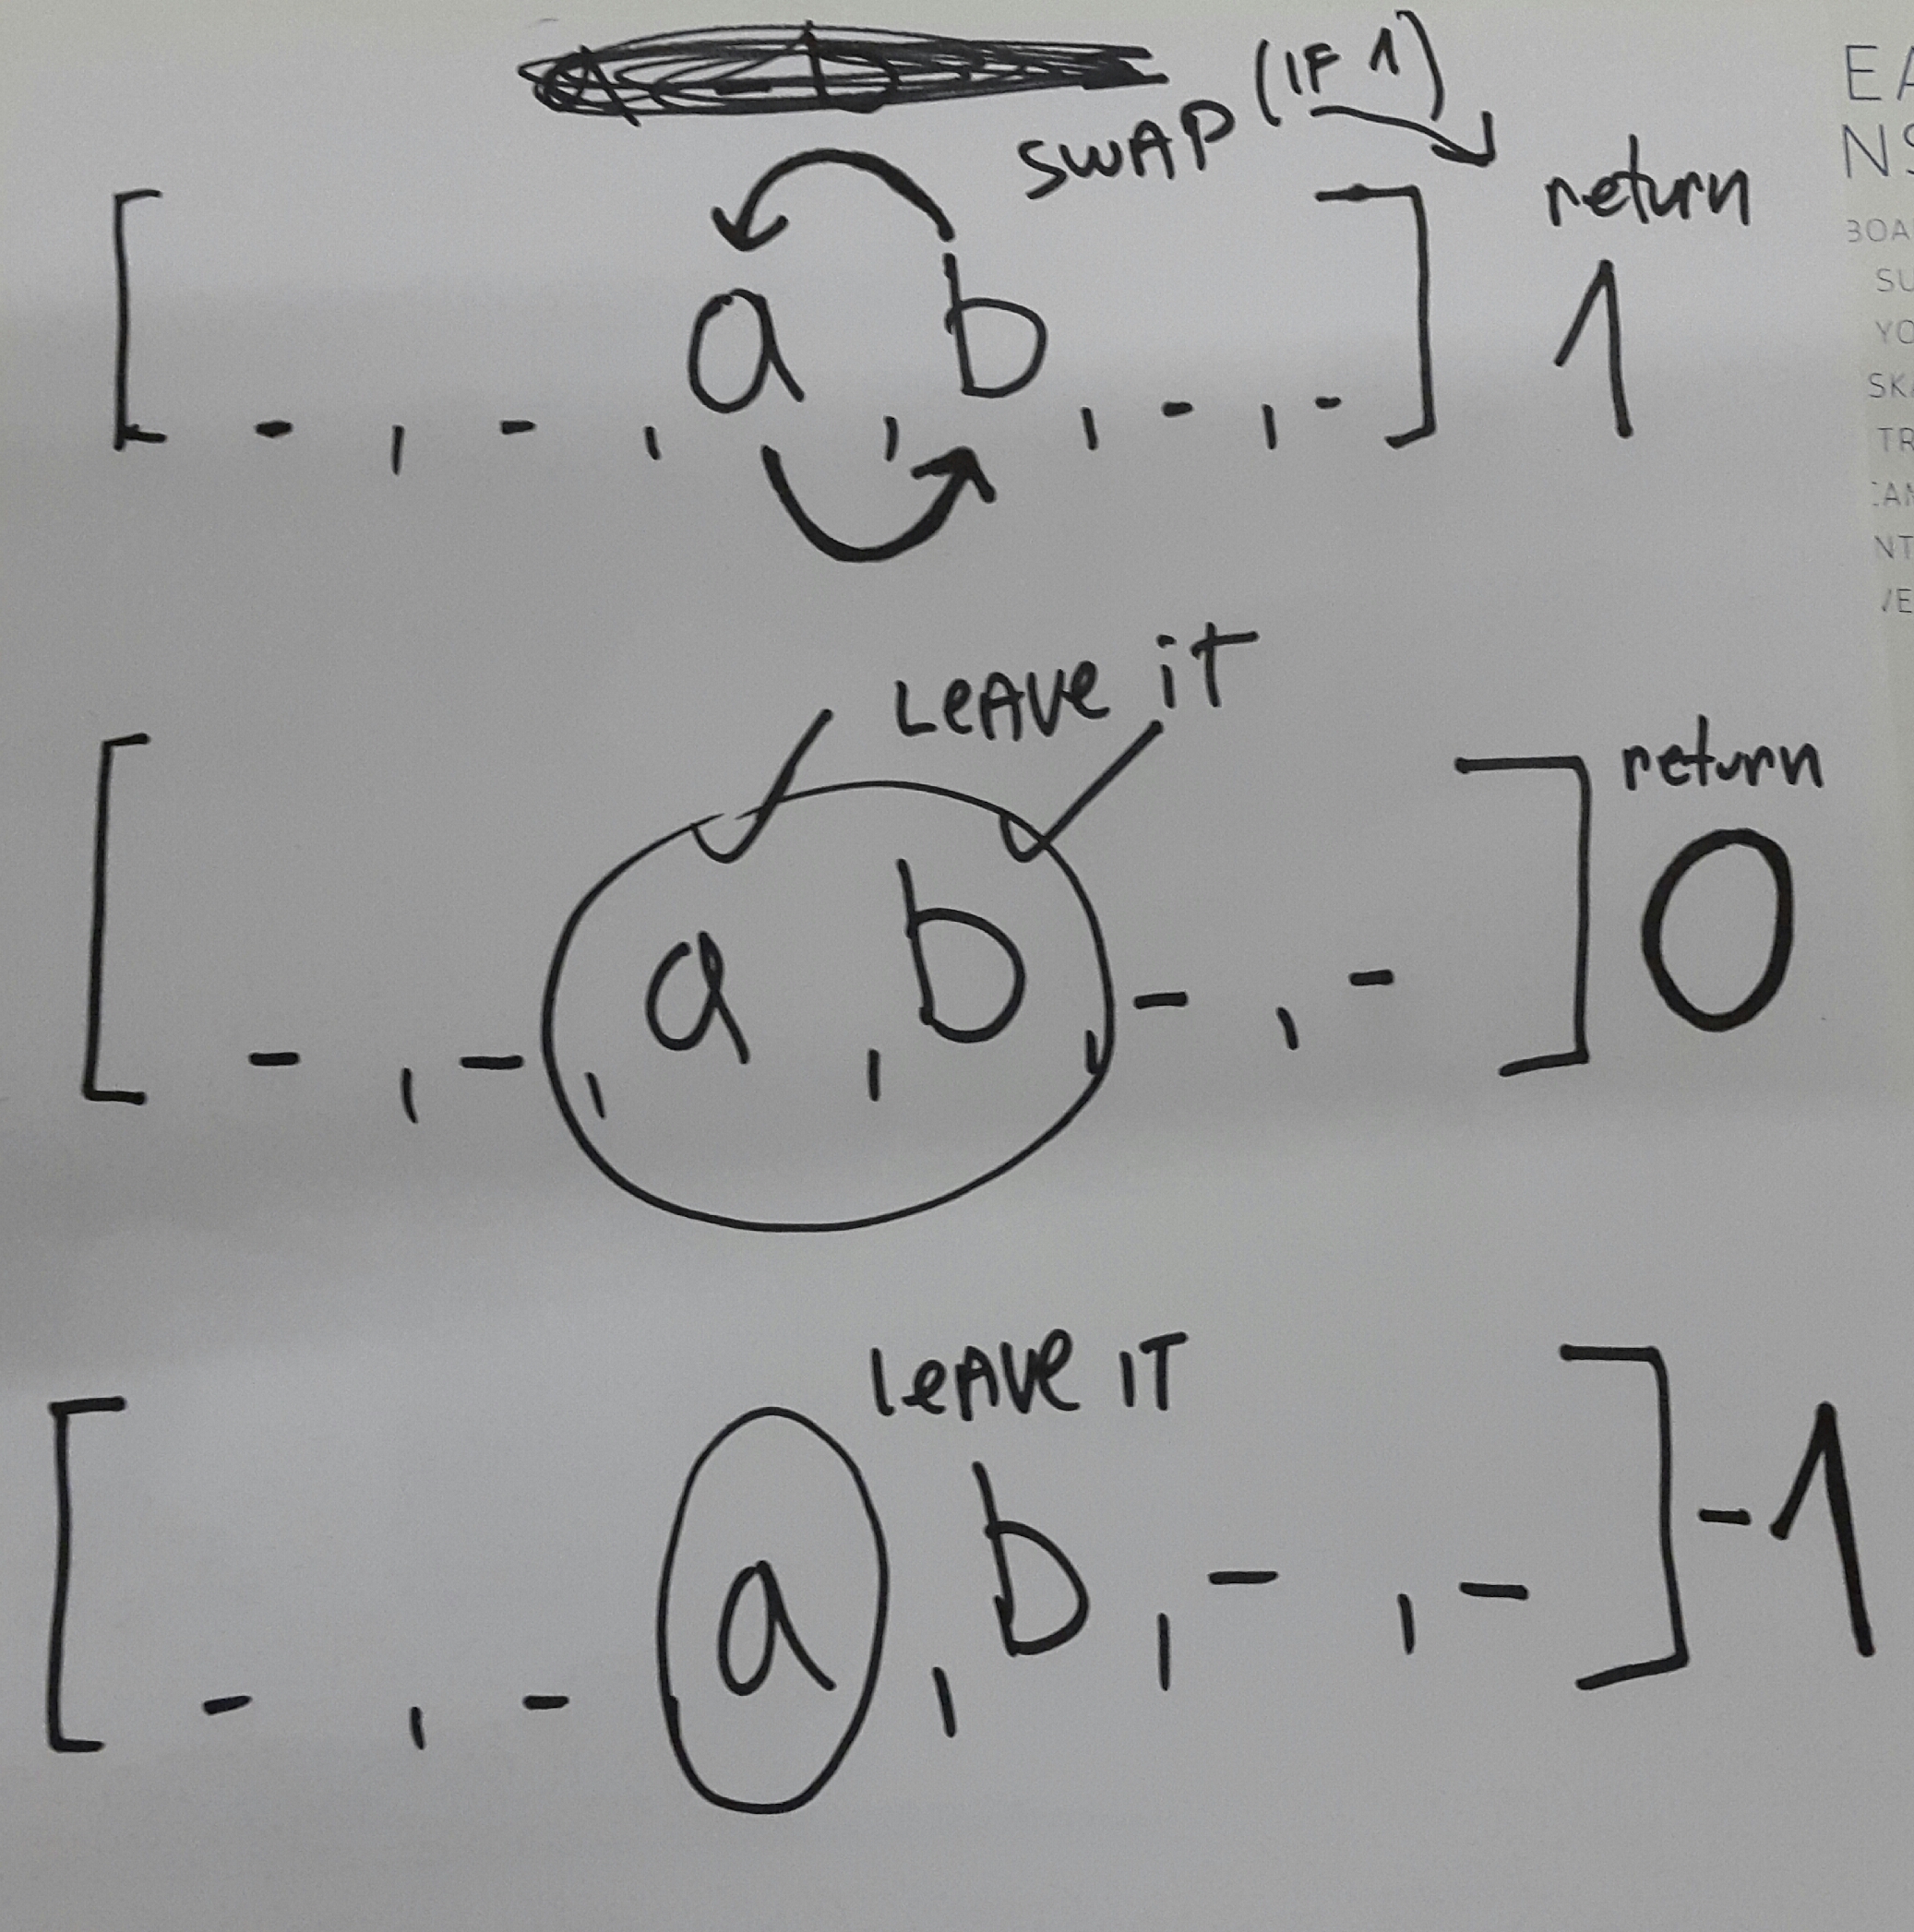 SWAP (IF 1)
return
[ - , - , a , b , - , - ] 1
Leave it
return
[ - , - , a , b , - , - ] 0
Leave IT
[ - , - a , b , - , - ] -1
EA
NS
BOA
SU
YO
SKA
TR
EAN
NT
VE